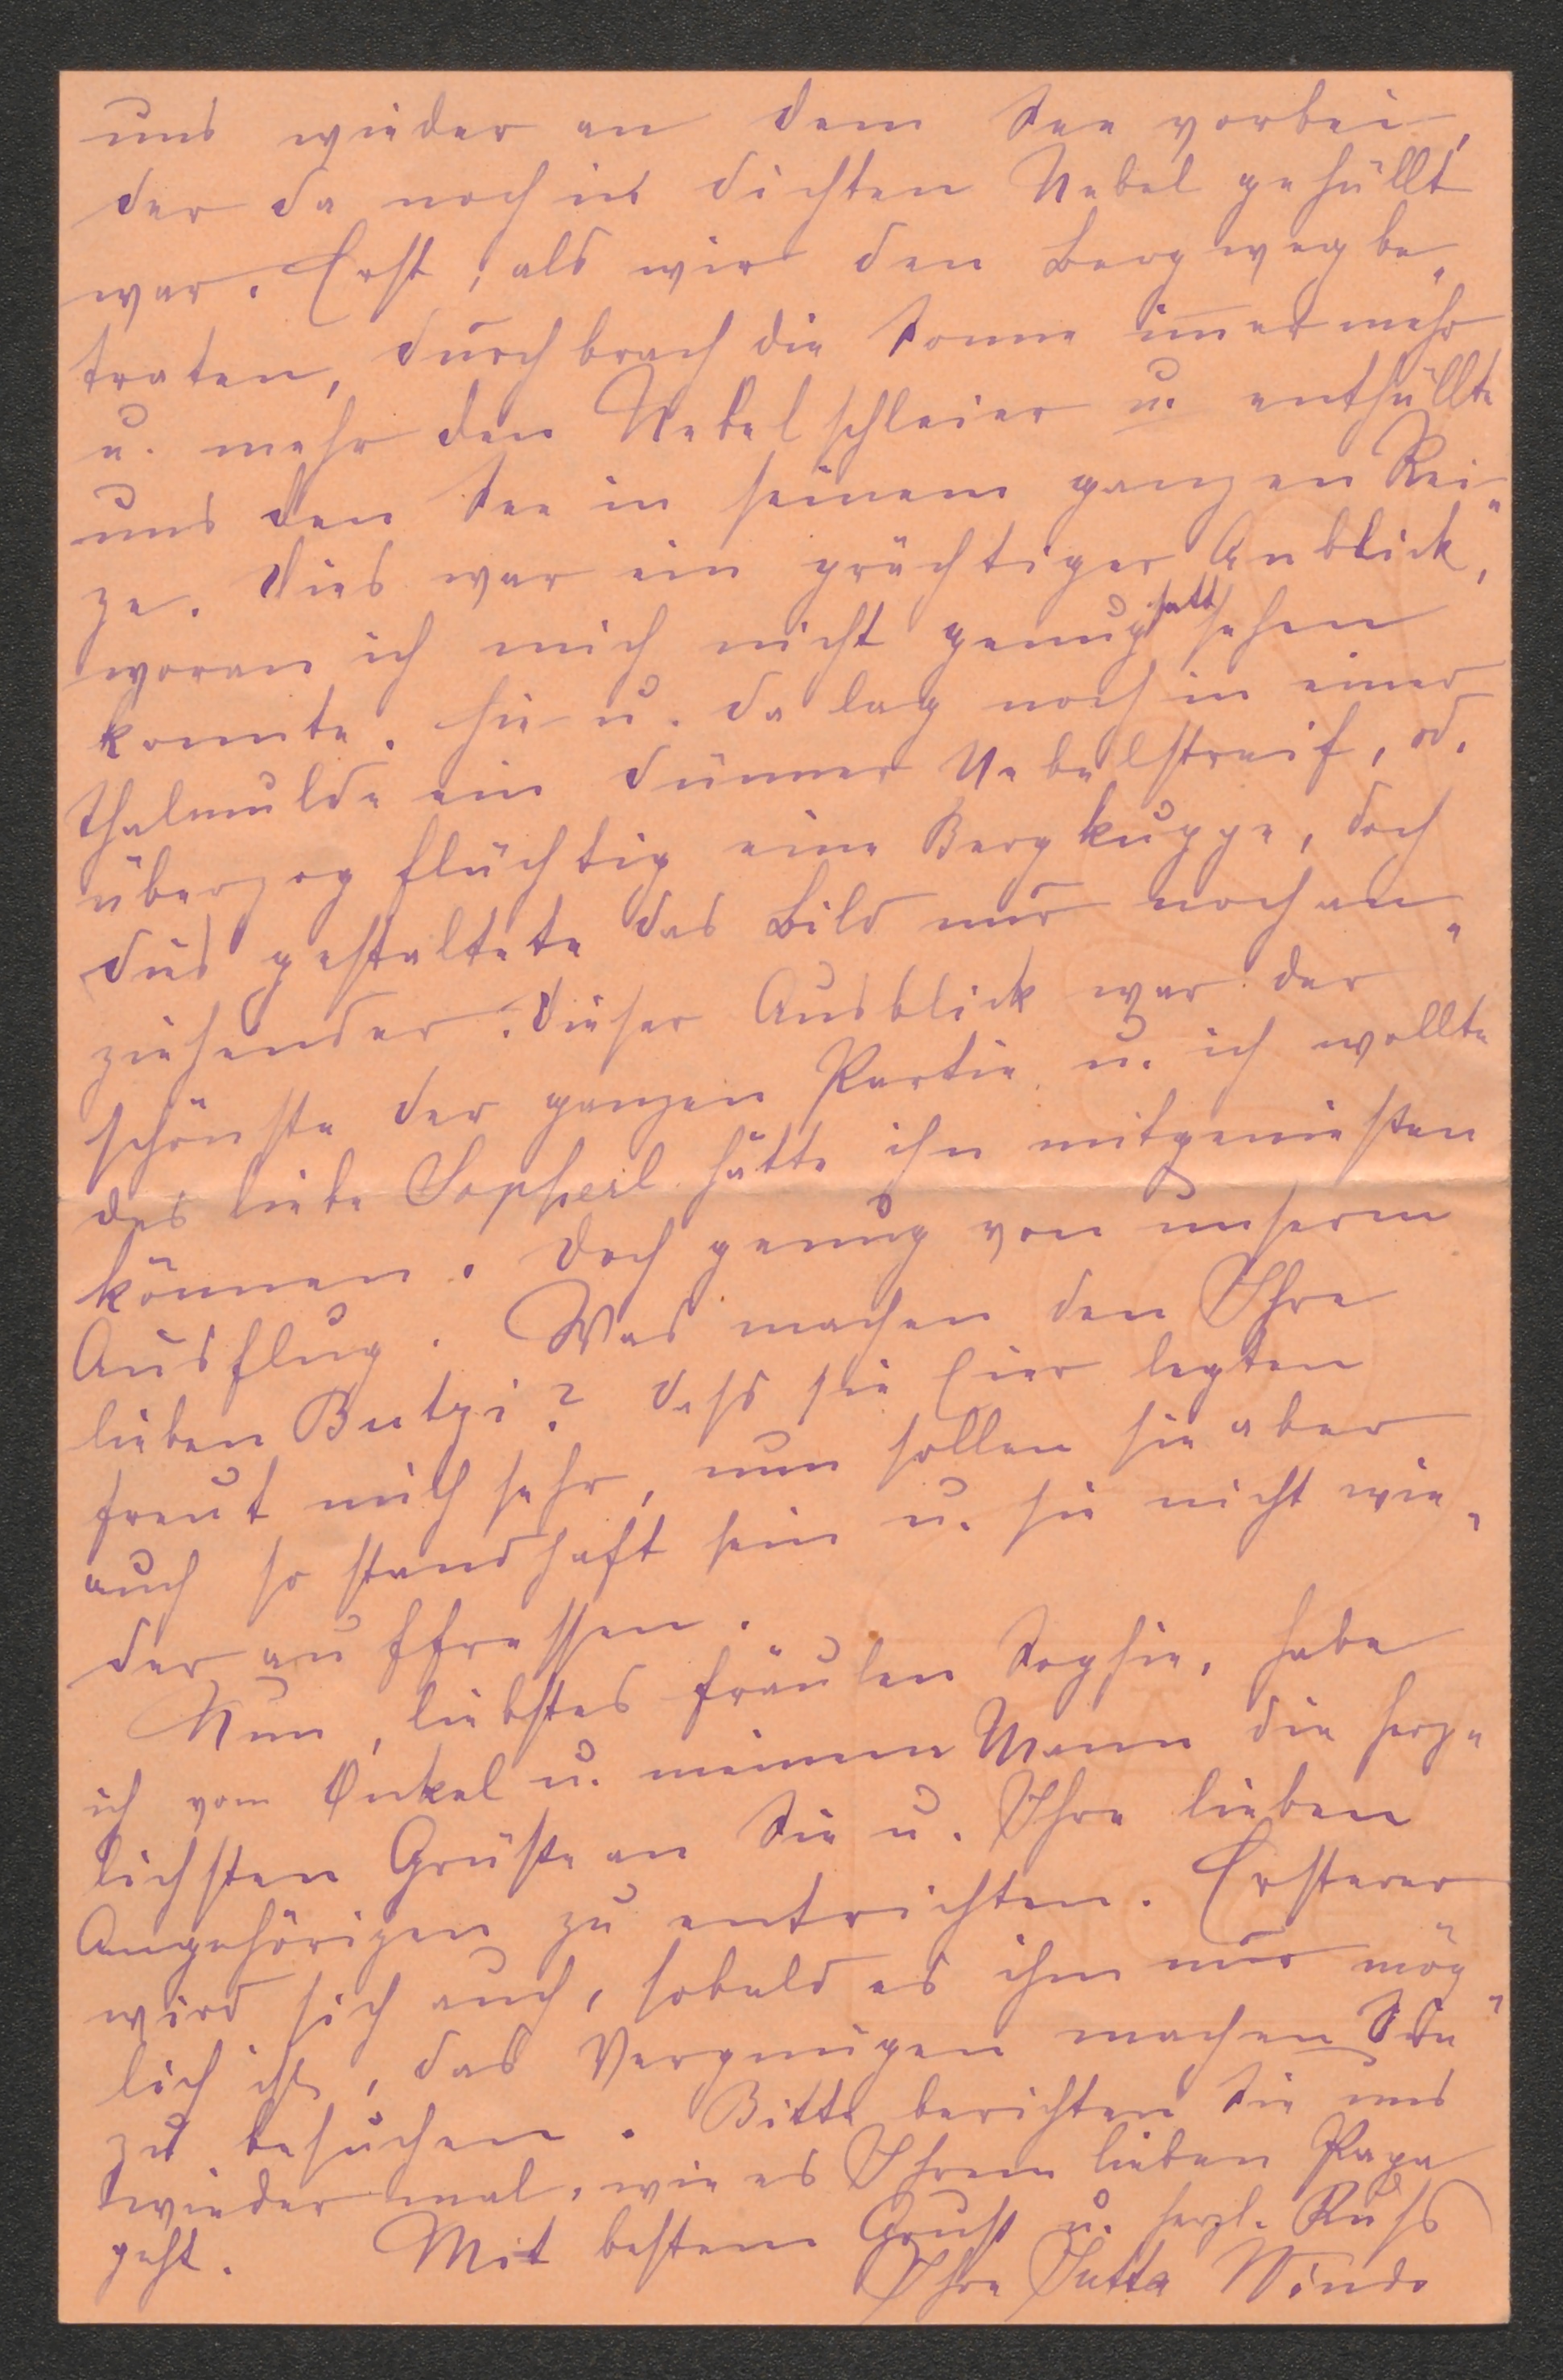 uns wieder an dem See vorbei,
der da noch in dichten Nebel gehüllt
war. Erst, als wir den Bergweg be„
traten, durchbrach die Sonne im̅er mehr
u. mehr den Nebelschleier u. enthüllte
uns den See in seinem ganzen Rei„
ze. Dies war ein prächtiger Anblick,
woran ich mich nicht genug satt sehen
konnte. Hie u. da lag noch in einer
Thalmulde ein dünner Nebelstreif, od.
überzog flüchtig eine Bergkuppe, doch
dies gestaltete das Bild nur noch an„
ziehender. Dieser Ausblick war der
schönste der ganzen Partie u. ich wollte
das liebe Sopherl hätte ihn mitgenießen
können. Doch genug von unserm
Ausflug. Was machen den Ihre
lieben Butzi? Dass sie Eier legten
freut mich sehr, nun sollen sie aber
auch so standhaft sein u. sie nicht wie„
der auffressen.
Nun, liebstes Fräulen Sophie, habe
ich vom Onkel u. meinem Mann die herz„
lichsten Grüße an Sie u. Ihre lieben
Angehörigen zu entrichten. Ersterer
wird sich auch, sobald es ihm nur mög„
lich ist, das Vergnügen machen Sie
zu besuchen. Bitte berichten Sie uns
wieder mal, wie es Ihrem lieben Papa
geht. Mit bestem Gruß u. herzl. Kuss
Ihre Jutta